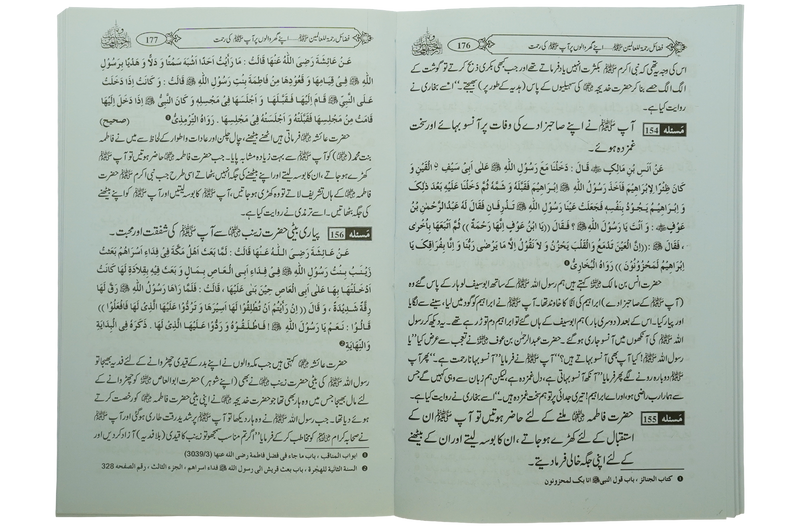 176 فضائل رحمۃ للعالمین ﷺ.....اپنے گھر والوں پر آپ ﷺ کی رحمت
اس کی وجہ یہ تھی کہ نبی اکرم ﷺ بکثرت انہیں یاد فرماتے تھے اور جب کبھی بکری ذبح کرتے تو گوشت کے
الگ الگ حصے بنا کر حضرت خدیجہ کی سہیلیوں کے پاس (ہدیہ کے طور پر) بھیجتے۔" اسے بخاری نے
روایت کیا ہے۔
مسئلہ 154 آپ ﷺ نے اپنے صاحبزادے کی وفات پر آنسو بہائے اور سخت
غمزدہ ہوئے۔
عَنْ اَنَسِ بْنِ مَالِكٍ قَالَ : دَخَلْنَا مَعَ رَسُوْلِ اللّٰهِ ﷺ عَلٰى اَبِىْ سَيْفٍ الْقَيْنِ وَ
كَانَ ظِئْرًا لِاِبْرَاهِيْمَ فَاَخَذَ رَسُوْلُ اللّٰهِ ﷺ اِبْرَاهِيْمَ فَقَبَّلَهُ وَ شَمَّهُ ثُمَّ دَخَلْنَا عَلَيْهِ بَعْدَ ذٰلِكَ
وَ اِبْرَاهِيْمُ يَجُوْدُ بِنَفْسِهِ فَجَعَلَتْ عَيْنَا رَسُوْلِ اللّٰهِ ﷺ تَذْرِفَانِ فَقَالَ لَهُ عَبْدُالرَّحْمٰنِ بْنُ
عَوْفٍ : وَ اَنْتَ يَا رَسُوْلَ اللّٰهِ ﷺ ؟ فَقَالَ ((يَا ابْنَ عَوْفٍ اِنَّهَا رَحْمَةٌ)) ثُمَّ اَتْبَعَهَا بِاُخْرٰى
، فَقَالَ : ((اِنَّ الْعَيْنَ تَدْمَعُ وَ الْقَلْبَ يَحْزَنُ وَ لَا نَقُوْلُ اِلَّا مَا يَرْضٰى رَبُّنَا وَ اِنَّا بِفِرَاقِكَ يَا
اِبْرَاهِيْمُ لَمَحْزُوْنُوْنَ)) رَوَاهُ الْبُخَارِىُّ ❶
حضرت انس بن مالک کہتے ہیں ہم رسول اللہ ﷺ کے ساتھ ابوسیف لوہار کے پاس گئے وہ
(آپ ﷺ کے صاحبزادے) ابراہیم کی انّا کا خاوند تھا۔ آپ ﷺ نے ابراہیم کو گود میں لیا، سینے سے لگایا
اور پیار کیا۔ اس کے بعد (دوسری بار) ہم ابوسیف کے ہاں گئے تو ابراہیم دم توڑ رہے تھے۔ یہ دیکھ کر رسول
اللہ ﷺ کی آنکھوں میں آنسو جاری ہو گئے۔ حضرت عبدالرحمٰن بن عوف نے تعجب سے عرض کیا "یا
رسول اللہ! کیا آپ بھی آنسو بہاتے ہیں؟" آپ ﷺ نے فرمایا "آنسو بہانا رحمت ہے۔" پھر آپ
ﷺ دوبارہ رونے لگے پھر فرمایا "آنکھ آنسو بہاتی ہے، دل غمزدہ ہے، لیکن ہم زبان سے وہی کہیں گے جس
سے ہمارا رب راضی ہو اور اے ابراہیم! تیری جدائی پر ہم سخت غمزدہ ہیں۔" اسے بخاری نے روایت کیا ہے۔
مسئلہ 155 حضرت فاطمہ ملنے کے لئے حاضر ہوتیں تو آپ ﷺ ان کے
استقبال کے لئے کھڑے ہو جاتے، ان کا بوسہ لیتے اور ان کے بیٹھنے
کے لئے اپنی جگہ خالی فرما دیتے۔
❶ کتاب الجنائز ، باب قول النبی ﷺ انا بک لمحزونون
177 فضائل رحمۃ للعالمین ﷺ.....اپنے گھر والوں پر آپ ﷺ کی رحمت
عَنْ عَائِشَةَ رَضِىَ اللّٰهُ عَنْهَا قَالَتْ : مَا رَاَيْتُ اَحَدًا اَشْبَهَ سَمْتًا وَ دَلًّا وَ هَدْيًا بِرَسُوْلِ
اللّٰهِ ﷺ فِىْ قِيَامِهَا وَ قُعُوْدِهَا مِنْ فَاطِمَةَ بِنْتِ رَسُوْلِ اللّٰهِ ﷺ ، قَالَتْ : وَ كَانَتْ اِذَا دَخَلَتْ
عَلَى النَّبِىِّ ﷺ قَامَ اِلَيْهَا فَقَبَّلَهَا وَ اَجْلَسَهَا فِىْ مَجْلِسِهِ وَ كَانَ النَّبِىُّ ﷺ اِذَا دَخَلَ اِلَيْهَا
قَامَتْ مِنْ مَجْلِسِهَا فَقَبَّلَتْهُ وَ اَجْلَسَتْهُ فِىْ مَجْلِسِهَا . رَوَاهُ التِّرْمِذِىُّ ❶ (صحیح)
حضرت عائشہ فرماتی ہیں اٹھنے بیٹھنے، چال چلن اور عادات و اطوار کے لحاظ سے میں نے فاطمہ
بنت محمد () کو آپ ﷺ سے بہت زیادہ مشابہ پایا۔ جب حضرت فاطمہ حاضر ہوتیں تو آپ ﷺ
کھڑے ہو جاتے، ان کا بوسہ لیتے اور اپنی بیٹھنے کی جگہ انہیں بٹھاتے اسی طرح جب نبی اکرم ﷺ حضرت
فاطمہ کے ہاں تشریف لاتے تو وہ کھڑی ہو جاتیں، آپ ﷺ کا بوسہ لیتیں اور آپ ﷺ کو اپنے بیٹھنے
کی جگہ بٹھاتیں۔ اسے ترمذی نے روایت کیا ہے۔
مسئلہ 156 پیاری بیٹی حضرت زینب سے آپ ﷺ کی شفقت اور محبت۔
عَنْ عَائِشَةَ رَضِىَ اللّٰهُ عَنْهَا قَالَتْ : لَمَّا بَعَثَ اَهْلُ مَكَّةَ فِىْ فِدَاءِ اَسْرَاهُمْ بَعَثَتْ
زَيْنَبُ بِنْتُ رَسُوْلِ اللّٰهِ ﷺ فِىْ فِدَاءِ اَبِى الْعَاصِ بِمَالٍ وَ بَعَثَتْ فِيْهِ بِقِلَادَةٍ لَهَا كَانَتْ
اَدْخَلَتْهَا بِهَا عَلٰى اَبِى الْعَاصِ حِيْنَ بَنٰى عَلَيْهَا ، قَالَتْ : فَلَمَّا رَاٰهَا رَسُوْلُ اللّٰهِ ﷺ رَقَّ لَهَا
رِقَّةً شَدِيْدَةً ، وَ قَالَ ((اِنْ رَاَيْتُمْ اَنْ تُطْلِقُوْا لَهَا اَسِيْرَهَا وَ تَرُدُّوْا عَلَيْهَا الَّذِىْ لَهَا فَافْعَلُوْا))
قَالُوْا : نَعَمْ يَا رَسُوْلَ اللّٰهِ ﷺ ! فَاَطْلَقُوْهُ وَ رَدُّوْا عَلَيْهَا الَّذِىْ لَهَا . ذَكَرَهُ فِى الْبِدَايَةِ
وَ النِّهَايَةِ ❷
حضرت عائشہ کہتی ہیں جب مکہ والوں نے اپنے بدر کے قیدی چھڑوانے کے لئے فدیہ بھیجا تو
رسول اللہ ﷺ کی بیٹی حضرت زینب نے بھی (اپنے شوہر) حضرت ابوالعاص کو چھڑوانے کے
لئے مال بھیجا جس میں وہ ہار بھی تھا جو حضرت خدیجہ نے اپنی بیٹی حضرت زینب کو رخصت کرتے
ہوئے دیا تھا۔ جب رسول اللہ ﷺ نے وہ ہار دیکھا تو آپ ﷺ پر شدید رقت طاری ہو گئی اور آپ ﷺ
نے صحابہ کرام کو مخاطب کر کے فرمایا "اگر تم مناسب سمجھو تو زینب کا قیدی (بلا فدیہ) آزاد کر دیں اور
❶ ابواب المناقب ، باب ما جاء فی فضل فاطمۃ رضی اللہ عنہا (3039/3)
❷ السنة الثانية للهجرة ، باب بعث قریش الی رسول اللہ ﷺ فداء اسراهم ، الجزء الثالث ، رقم الصفحه 328